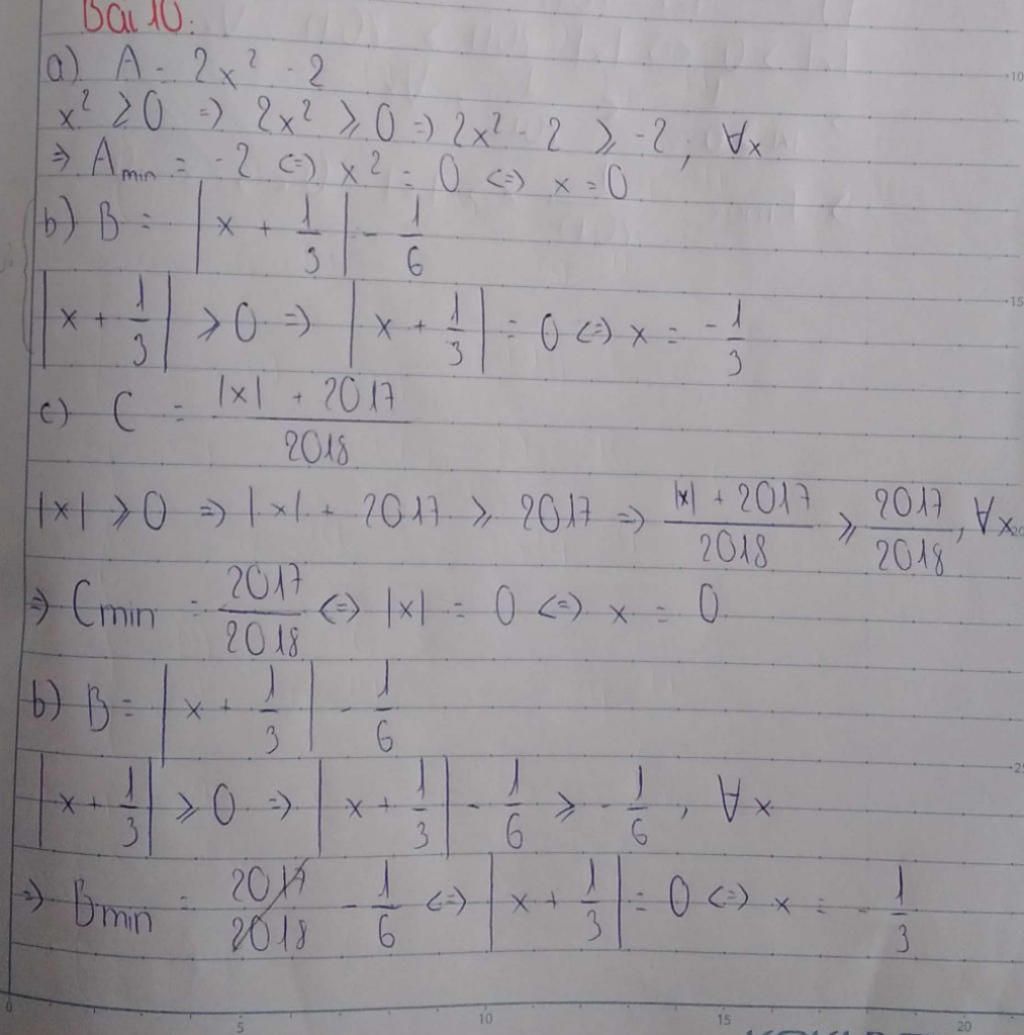 Bài 10:
a) A = 2x² - 2
x² ≥ 0 => 2x² ≥ 0 => 2x² - 2 ≥ -2, ∀x
=> Amin = -2 <=> x² = 0 <=> x = 0
b) B = |x + 1/3| - 1/6
|x + 1/3| ≥ 0 => |x + 1/3| = 0 <=> x = -1/3
c) C = (|x| + 2017)/2018
|x| ≥ 0 => |x| + 2017 ≥ 2017 => (|x| + 2017)/2018 ≥ 2017/2018, ∀x
=> Cmin = 2017/2018 <=> |x| = 0 <=> x = 0
b) B = |x + 1/3| - 1/6
|x + 1/3| ≥ 0 => |x + 1/3| - 1/6 ≥ -1/6, ∀x
=> Bmin = 2017/2018 - 1/6 <=> |x + 1/3| = 0 <=> x = -1/3